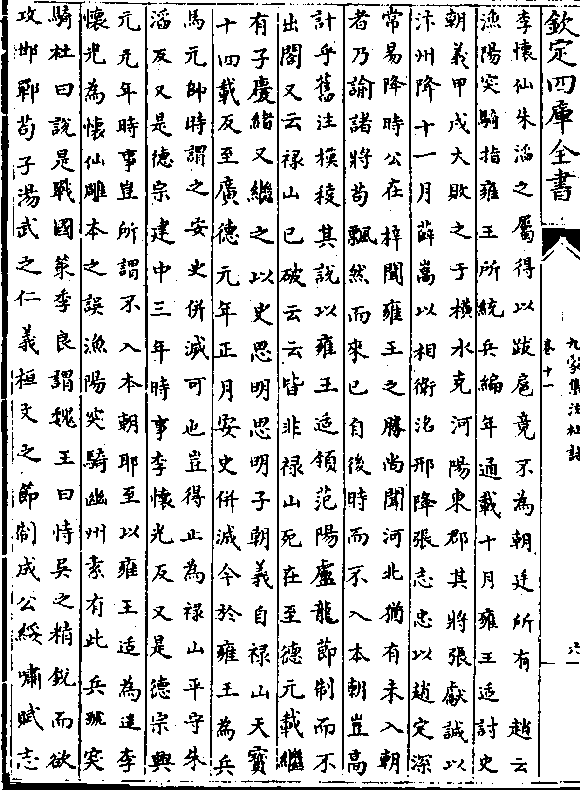 欽定四庫全書
九家集注杜詩
卷十一
六
李懷仙朱滔之屬得以跋扈竟不為朝廷所有 趙云
漁陽突騎指雍王所統兵編年通載十月雍王适討史
朝義甲戌大敗之于横水克河陽東郡其將張獻誠以
汴州降十一月薛嵩以相衛洺邢降張志忠以趙定深
常易降時公在梓聞雍王之勝尚聞河北猶有未入朝
者乃諭諸將苟飄然而來已自後時而不入本朝豈高
計乎舊注模稜其說以雍王适領范陽盧龍節制而不
出閤又云禄山已破云云皆非禄山死在至德元載繼
有子慶緒又繼之以史思明思明子朝義自禄山天寶
十四載反至廣德元年正月安史併滅今於雍王為兵
馬元帥時謂之安史併滅可也豈得止為禄山平乎朱
滔反又是德宗建中三年時事李懷光反又是德宗興
元元年時事豈所謂不入本朝耶至以雍王适為逵李
懷光為懷仙雕本之誤漁陽突騎幽州素有此兵號突
騎杜曰說是戰國策季良謂魏王曰恃吳之精銳而欲
攻邯鄲荀子湯武之仁義桓文之節制成公綏嘯賦志